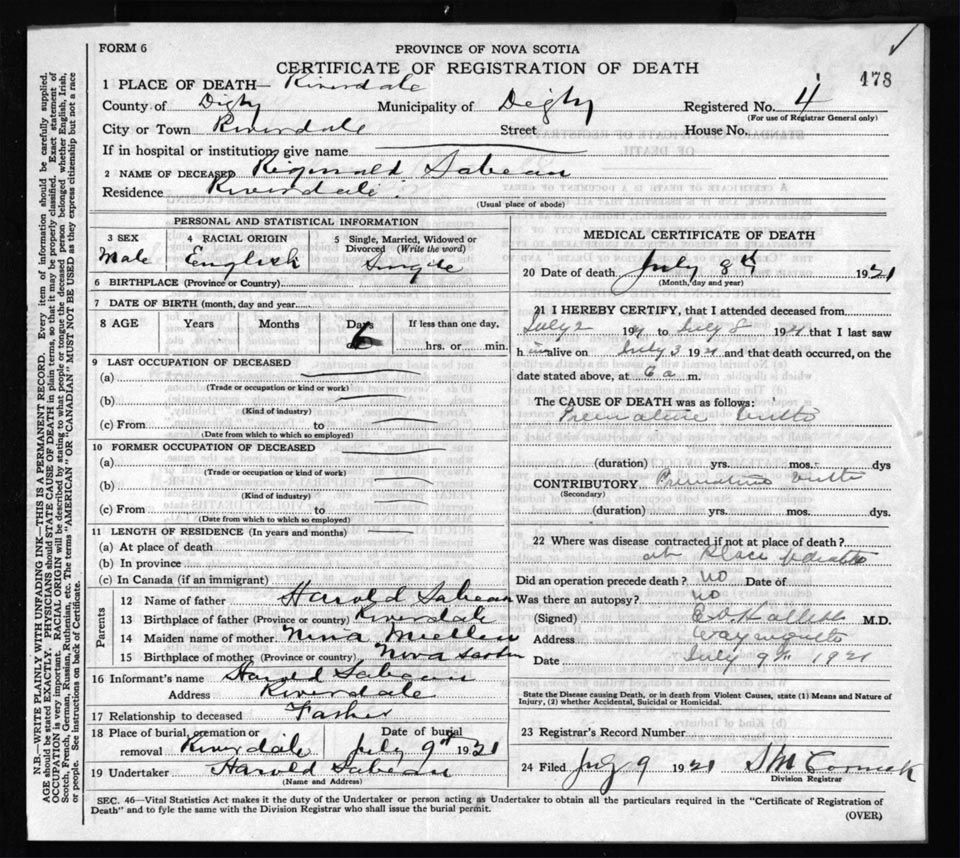 FORM 6
PROVINCE OF NOVA SCOTIA
CERTIFICATE OF REGISTRATION OF DEATH
178
1 PLACE OF DEATH— Riverdale
County of Digby Municipality of Digby Registered No. 4
(For use of Registrar General only)
City or Town Riverdale Street House No.
If in hospital or institution, give name
2 NAME OF DECEASED Reginald Sabean
Residence Riverdale
(Usual place of abode)
PERSONAL AND STATISTICAL INFORMATION
3 SEX 4 RACIAL ORIGIN 5 Single, Married, Widowed or Divorced (Write the word)
Male English Single
6 BIRTHPLACE (Province or Country)
7 DATE OF BIRTH (month, day and year)
8 AGE Years Months Days If less than one day,
6 hrs. or min.
9 LAST OCCUPATION OF DECEASED
(a)
(Trade or occupation or kind or work)
(b)
(Kind of industry)
(c) From to
(Date from which to which so employed)
10 FORMER OCCUPATION OF DECEASED
(a)
(Trade or occupation or kind or work)
(b)
(Kind of industry)
(c) From to
(Date from which to which so employed)
11 LENGTH OF RESIDENCE (In years and months)
(a) At place of death
(b) In province
(c) In Canada (if an immigrant)
Parents
12 Name of father Harold Sabean
13 Birthplace of father (Province or country) Riverdale
14 Maiden name of mother Nina
15 Birthplace of mother (Province or country) Nova Scotia
16 Informant's name Harold Sabean
Address Riverdale
17 Relationship to deceased Father
18 Place of burial, cremation or removal Riverdale Date of burial July 9th 1921
19 Undertaker Harold Sabean
(Name and Address)
MEDICAL CERTIFICATE OF DEATH
20 Date of death July 8th 1921
(Month, day and year)
21 I HEREBY CERTIFY, that I attended deceased from
July 2 1921 to July 8 1921 that I last saw
h im alive on July 3 1921 and that death occurred, on the
date stated above, at 6 a m.
The CAUSE OF DEATH was as follows:
Premature birth
(duration) yrs. mos. dys
CONTRIBUTORY Premature birth
(Secondary)
(duration) yrs. mos. dys.
22 Where was disease contracted if not at place of death?
at place of death
Did an operation precede death? no Date of
Was there an autopsy? no
(Signed) M.D.
Address Weymouth
Date July 9th 1921
State the Disease causing Death, or in death from Violent Causes, state (1) Means and Nature of
Injury, (2) whether Accidental, Suicidal or Homicidal.
23 Registrar's Record Number
24 Filed July 9 1921 McCormick
Division Registrar
SEC. 46—Vital Statistics Act makes it the duty of the Undertaker or person acting as Undertaker to obtain all the particulars required in the "Certificate of Registration of
Death" and to fyle the same with the Division Registrar who shall issue the burial permit.
(OVER)
N.B.—WRITE PLAINLY WITH UNFADING INK—THIS IS A PERMANENT RECORD. Every item of information should be carefully supplied.
AGE should be stated EXACTLY. PHYSICIANS should STATE CAUSE OF DEATH in plain terms, so that it may be properly classified. Exact statement of
OCCUPATION is very important. RACIAL ORIGIN will be described by stating to what people or tongue the deceased person belonged whether English, Irish,
Scotch, French, German, Russian, Ruthenian, etc. The terms "AMERICAN" OR "CANADIAN" MUST NOT BE USED as they express citizenship but not a race
or people. See instructions on back of Certificate.